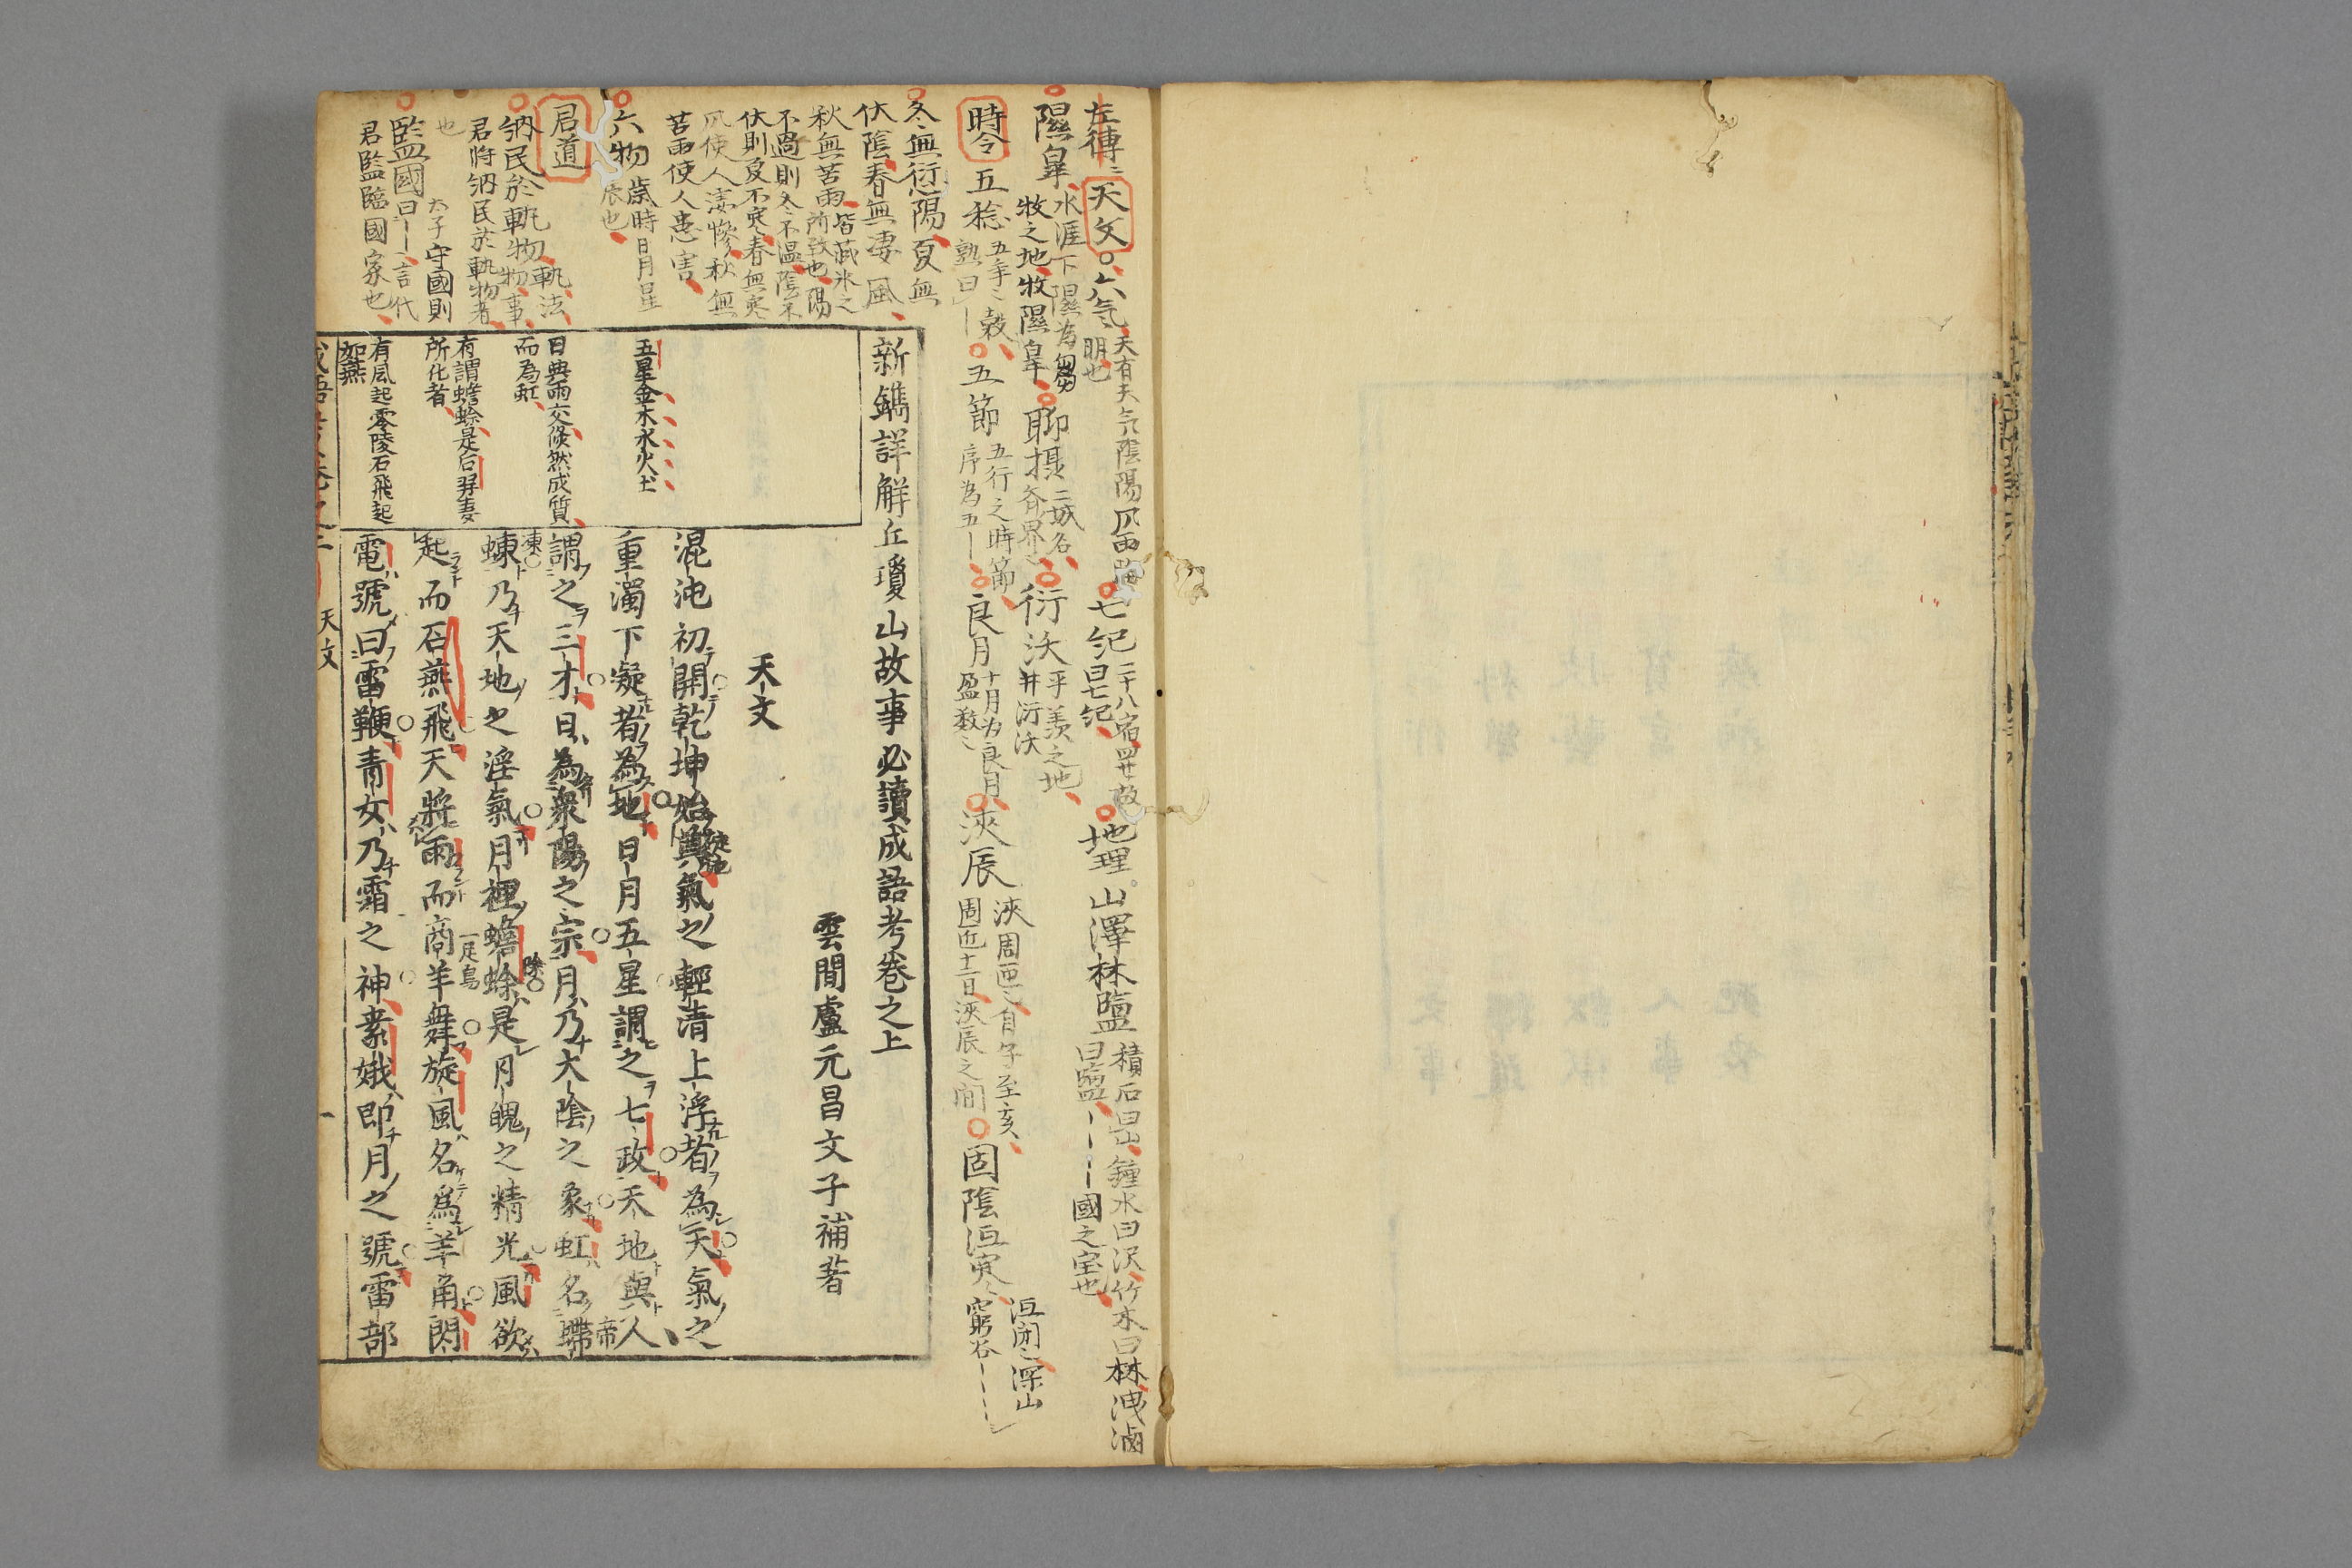 左傳
天文
六气
天有六气陰陽风雨晦
明也
七紀
二十八宿四七故
曰七紀
地理
山澤林鹽
積石曰山鍾水曰沢竹木曰林洩滷
曰鹽
國之宝也
隰皐
水涯下隰為芻
牧之地牧隰皐
聊摂
二城名
斉界
衍沃
平美之地
井衍沃
時令
五稔
五年
穀
熟曰
五節
五行之時節
序為五
良月
十月為良月
盈数
浹辰
浹周匝自子至亥
周匝十二日浹辰之間
固陰沍寒
沍閉深山
窮谷
冬無衍陽夏無
伏陰春無凄風
秋無苦雨
皆蔵氷之
所致也
陽
不過則冬不温陰不
伏則夏不寒春無寒
风使人凄惨秋無
苦雨使人患害
六物
歳時日月星
辰也
君道
納民於軌物
軌法
物事
君将納民於軌物者
也
監國
太子守國則
曰
言代
君監臨國家也
新鐫詳解丘瓊山故事必讀成語考卷之上
雲間盧元昌文子補著
天文
五星金木水火土
日與雨交倏然成質
而為虹
有謂蟾蜍是后羿妻
所化者
有風起零陵石飛起
如燕
混沌初開乾坤始奠氣之輕清上浮者為天氣之
重濁下凝者為地日月五星謂之七政天地與人
謂之三才日為衆陽之宗月乃大陰之象虹名螮
蝀乃天地之淫氣月裡蟾蜍是月魄之精光風欲
起而石燕飛天將雨而商羊舞旋風名為羊角閃
一足鳥
電號曰雷鞭青女乃霜之神素娥即月之號雷部
天文
一